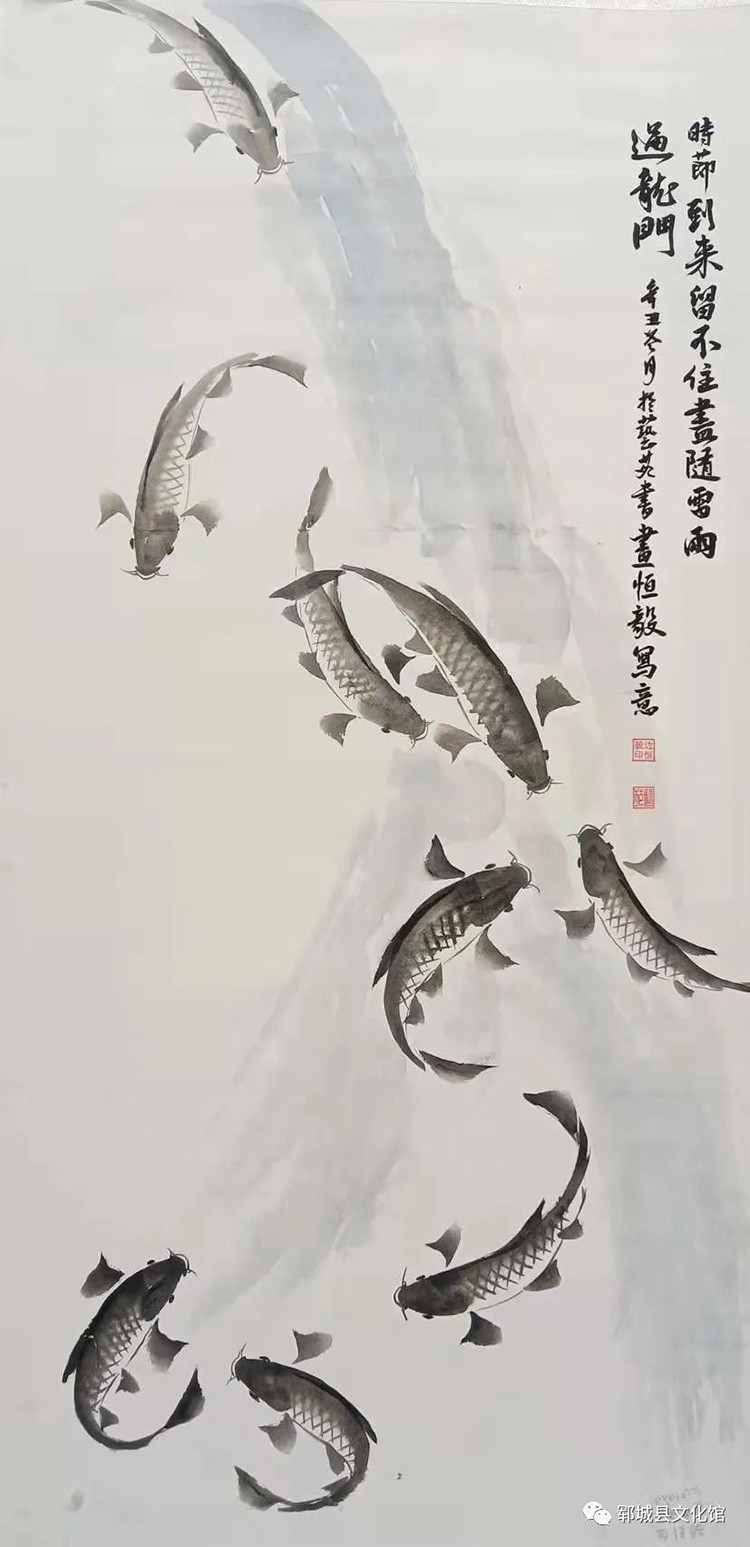 時節到来留不住盡隨雷雨
過龍門
辛丑冬月於藝苑書畫恒毅寫意
郓城县文化馆